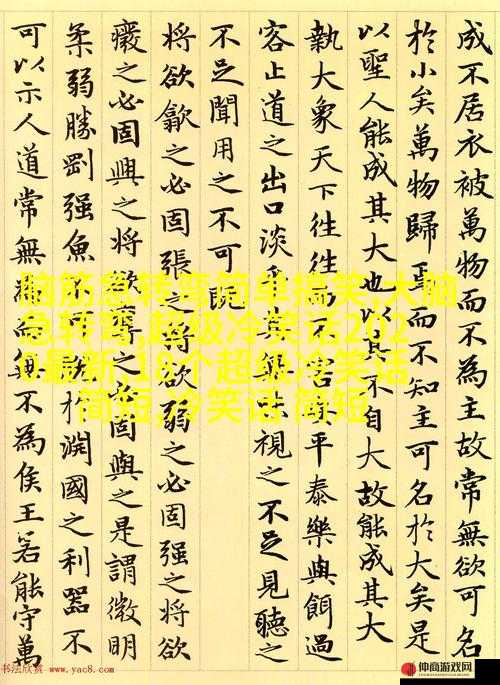 成不居衣被萬物而不為主故常無欲可名
於小矣萬物歸焉而不知主可名於大矣是
以聖人能成其大也以其不自大故能成其大
執大象天下往往而不害安平泰樂與餌過
客止道之出口淡乎其無味視之不足見聽之
不足聞用之不可既
將欲歙之必固張之將欲弱之必固强之將欲
癈之必固興之將欲奪之必固與之是謂微明
柔弱勝剛强魚不可脫於淵國之利器不
可以示人道常無為而無不為侯王若能守萬
脑筋急转弯简单搞笑,大脑
急转弯,超级冷笑话202
最新,18个超级冷笑话
简短,冷笑话 简短
书法欣赏 www.yac8.com
仲商游戏网